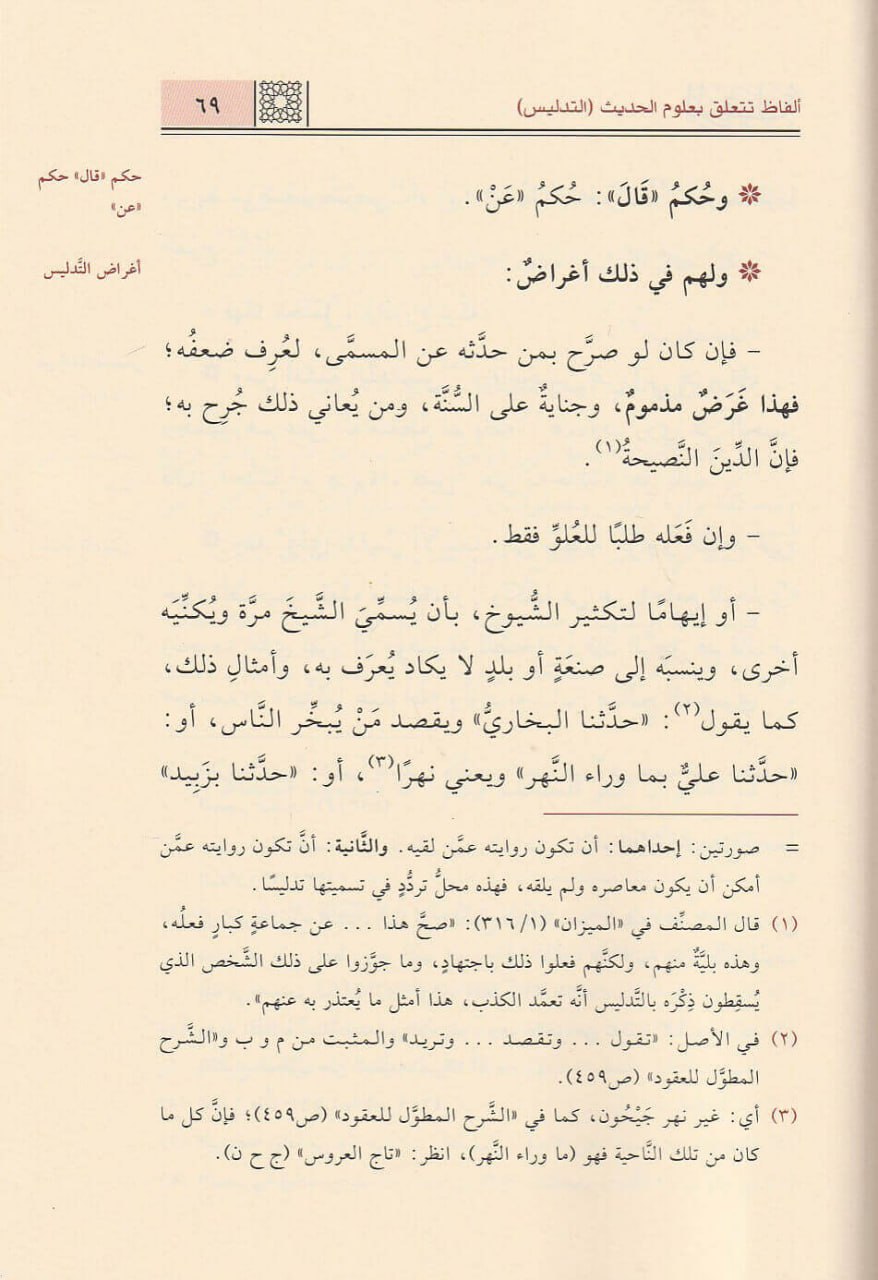 ألفاظ تتعلق بعلوم الحديث (التدليس)
٦٩
حكم «قال» حكم
«عن»
وحُكمُ «قَالَ»: حُكمُ «عَنْ».
أغراض التَّدليس
ولهم في ذلك أغراضٌ:
– فإن كان لو صرَّح بمن حدَّثه عن المسمَّى، لعُرِف ضعفُه؛
فهذا غَرَضٌ مذمومٌ، وجنايةٌ على السُّنَّة، ومن يُعاني ذلك جُرِح به؛
فإنَّ الدِّينَ النَّصيحةُ(١).
– وإن فَعَله طلبًا للعُلوِّ فقط.
– أو إيهامًا لتكثير الشُّيوخ، بأن يُسمِّيَ الشَّيخَ مرَّة ويُكنِّيَه
أخرى، وينسبَه إلى صنعَةٍ أو بلدٍ لا يكاد يُعرَف به، وأمثالِ ذلك،
كما يقول(٢): «حدَّثنا البخاريُّ» ويقصد مَنْ يُبخِّر النَّاس، أو:
«حدَّثنا عليٌّ بما وراء النَّهر» ويعني نهرًا(٣)، أو: «حدَّثنا بزَبِيد»
= صورتين: إحداهما: أن تكون روايته عمَّن لقيه. والثَّانية: أنَّ تكون روايته عمَّن
أمكن أن يكون معاصره ولم يلقه، فهذه محلُّ تردُّدٍ في تسميتها تدليسًا.
(١) قال المصنِّف في «الميزان» (٣١٦/١): «صحَّ هذا ... عن جماعةٍ كبارٍ فعلُه،
وهذه بليَّةٌ منهم، ولكنَّهم فعلوا ذلك باجتهادٍ، وما جوَّزوا على ذلك الشَّخص الذي
يُسقِطون ذِكْرَه بالتَّدليس أنَّه تعمَّد الكذب، هذا أمثل ما يُعتذر به عنهم».
(٢) في الأصل: «تقول ... وتقصد ... وتريد» والمثبت من م و ب و«الشَّرح
المطوَّل للعقود» (ص٤٥٩).
(٣) أي: غير نهر جَيْحُون، كما في «الشَّرح المطوَّل للعقود» (ص٤٥٩)؛ فإنَّ كل ما
كان من تلك النَّاحية فهو (ما وراء النَّهر)، انظر: «تاج العروس» (ج ح ن).